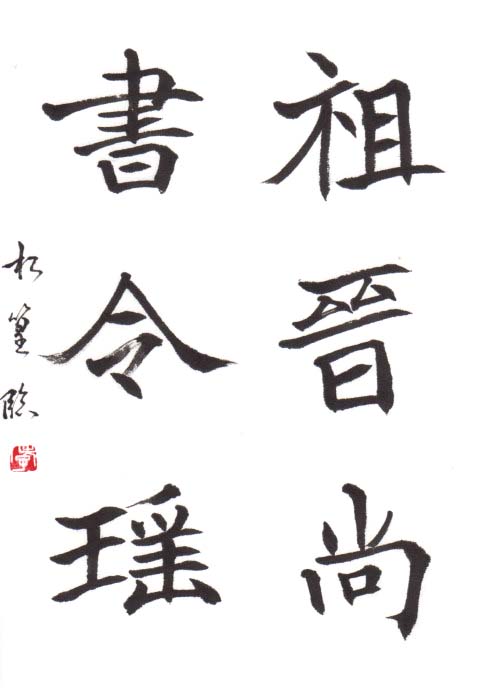 祖晉尚
書令瑶
松篁臨